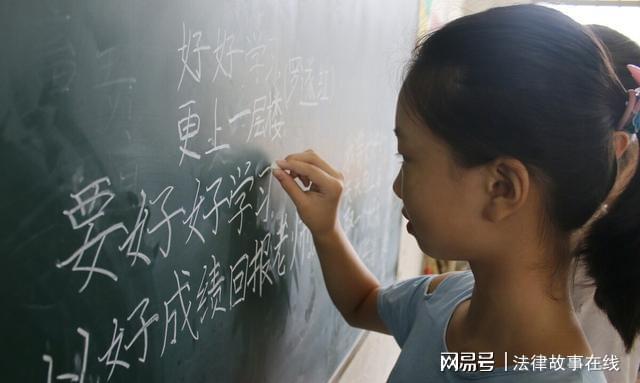 好好学习
更上一层楼
要好好学习
以好成绩回报老师
网易号 | 法律故事在线